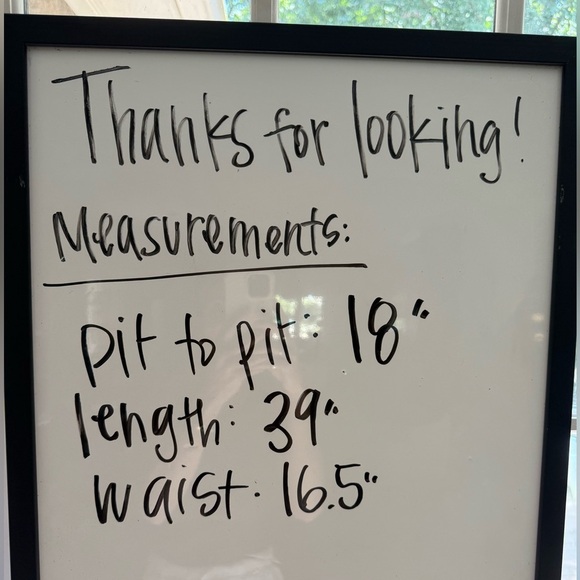 Thanks for looking!
Measurements:
pit to pit: 18"
length: 39"
waist: 16.5"